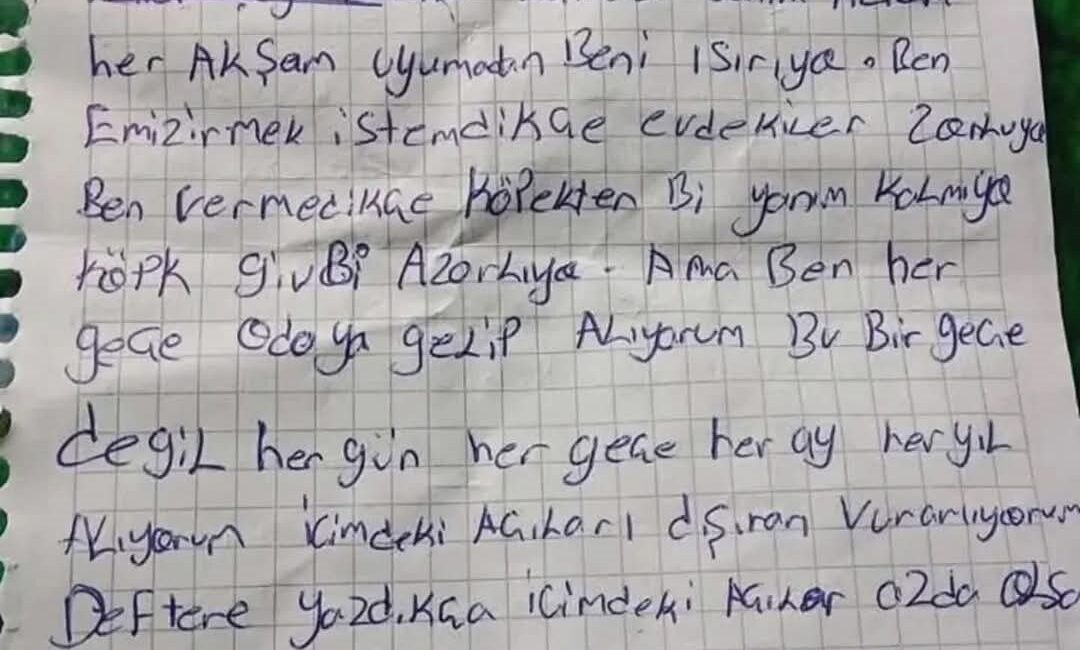 her AKŞam Uyumadan Beni ısırıya. Ben
Emizirmek istemdikçe evdekiler Zorluya
Ben vermedikçe Köpekten Bi yanım Kalmıya
Köpk givBi Azarlıya. Ama Ben her
geçe Odaya gelip ALıyorum Bu Bir geçe
değiL her gün her geçe her ay her yıL
ALıyorum içimdeki Acıları dışıran Vurarlıyorum
Deftere yazdıkça içimdeki Acılar azda Olsa